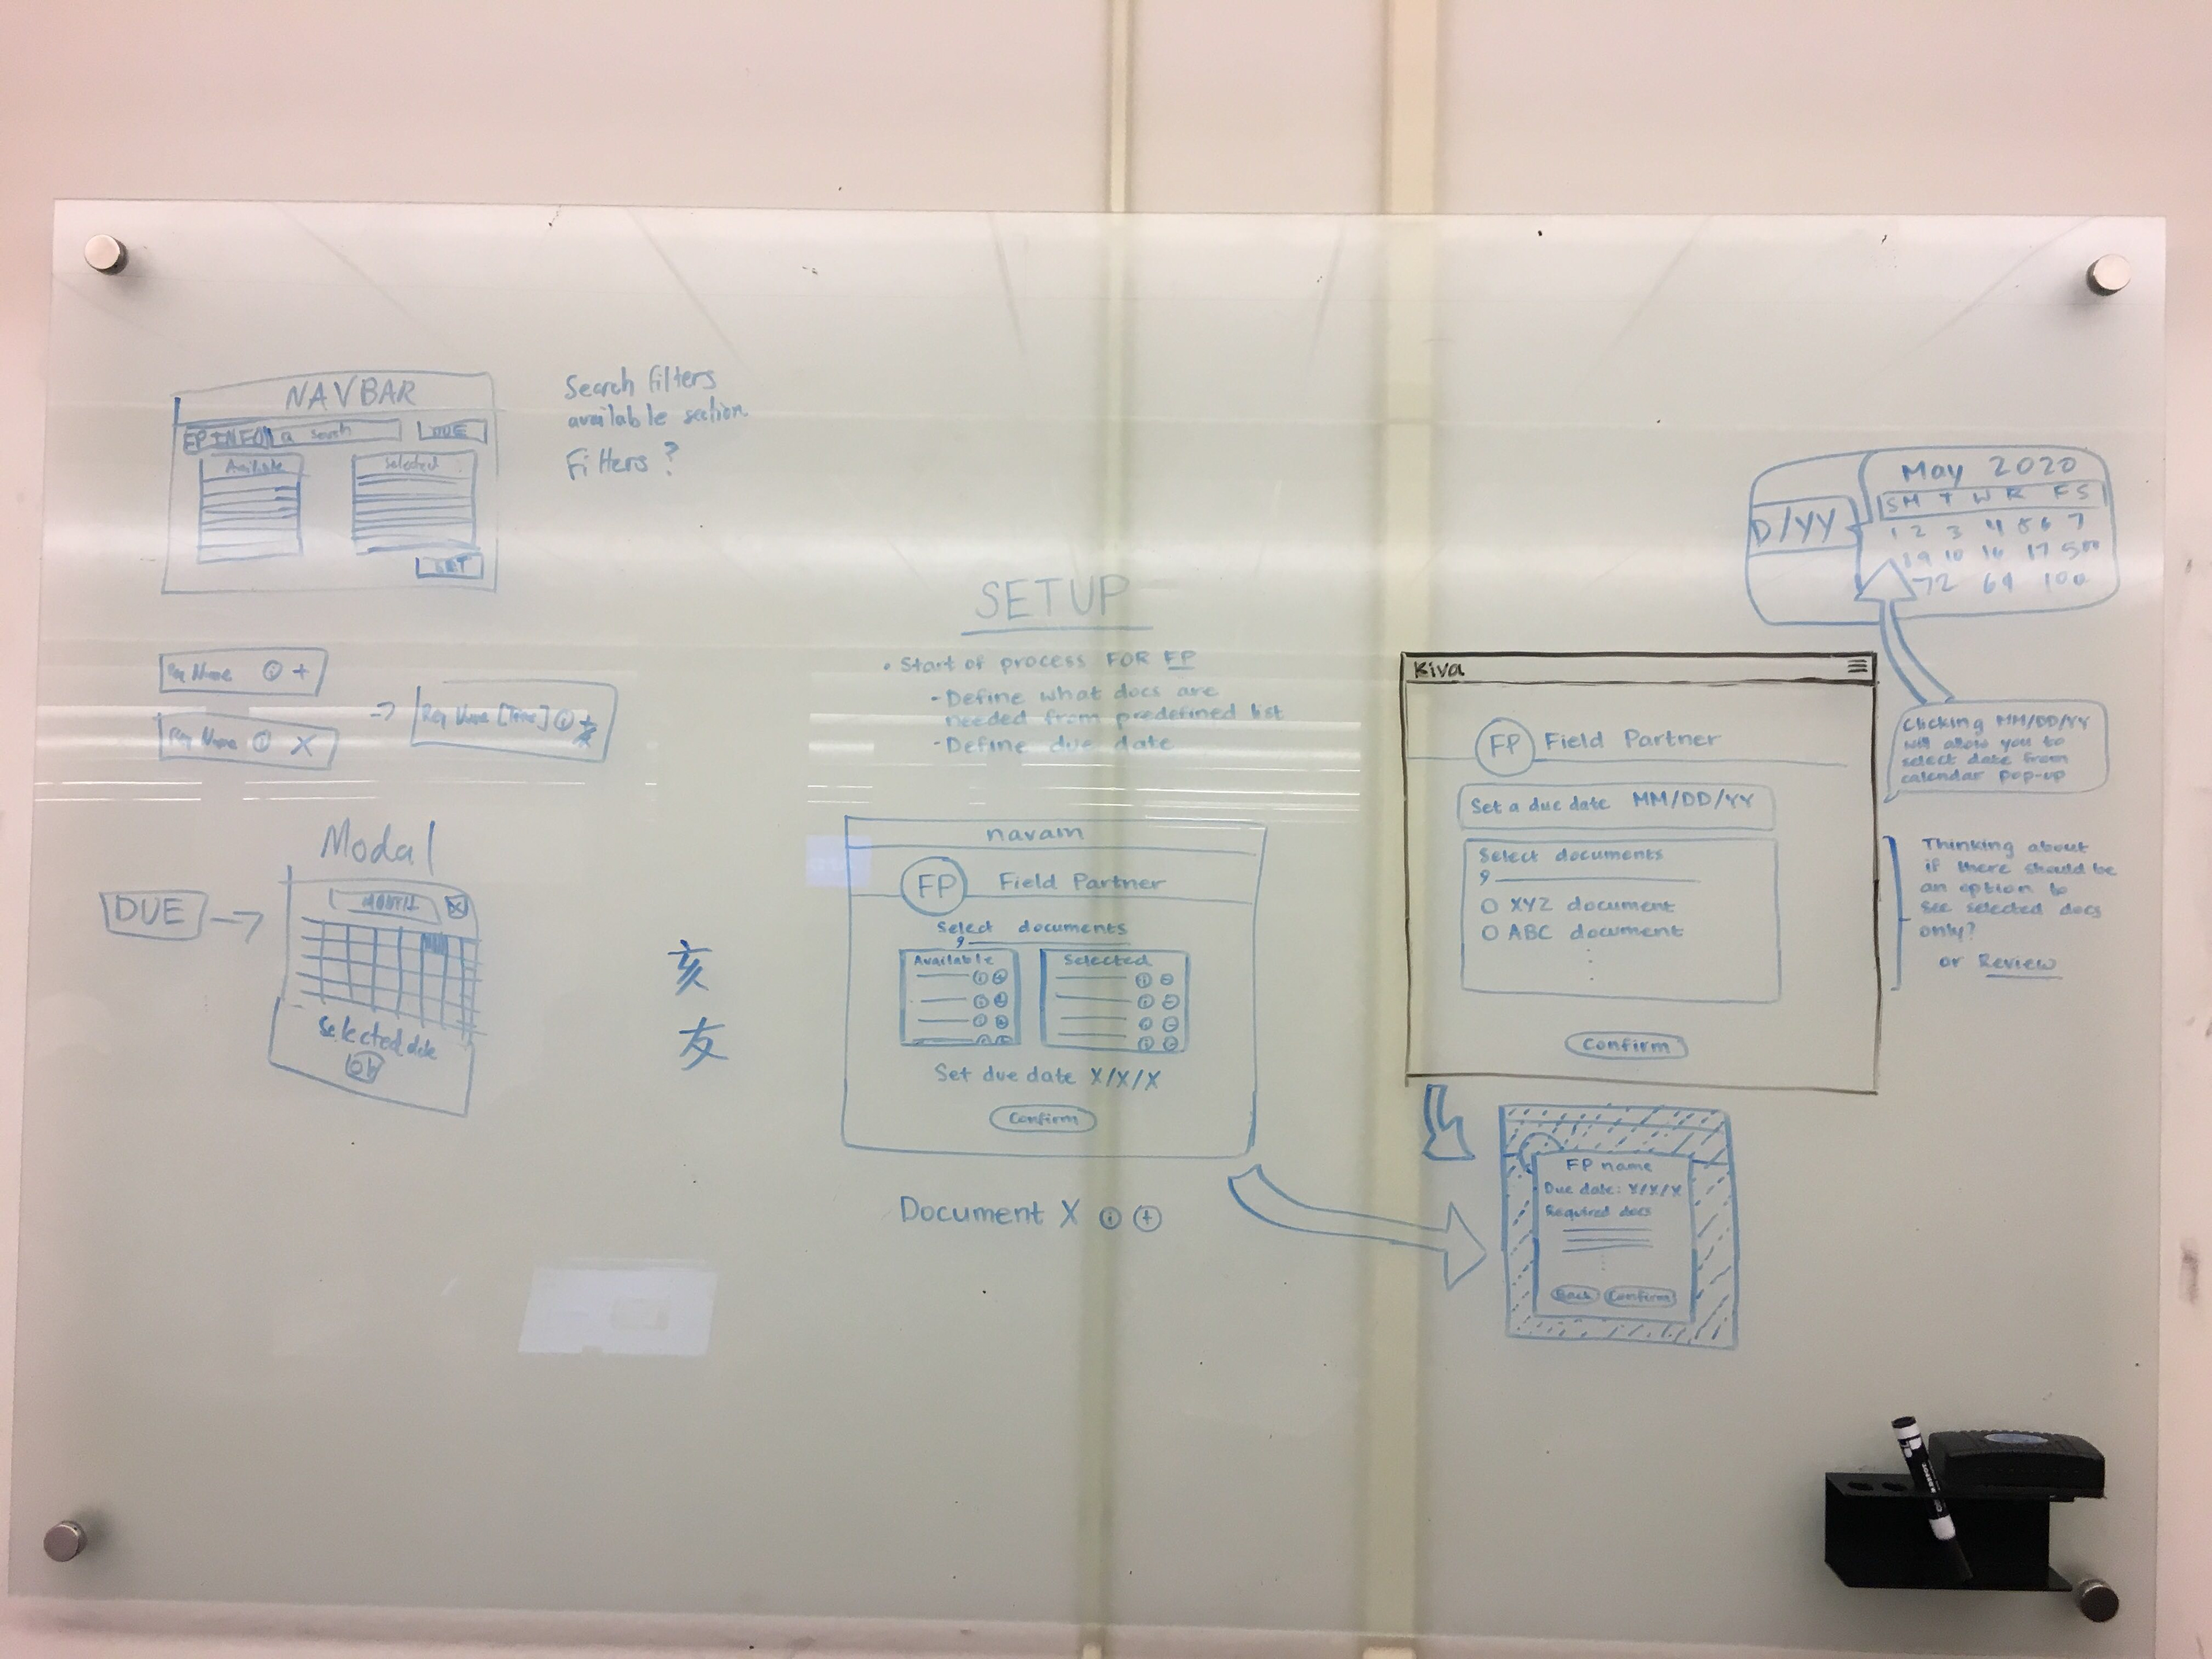 NAVBAR
FP INFO search
DUE
Available
Selected
Search filters
available section
Filters?
Name ⓘ +
Name ⓘ X
→
Name [Time] ⓘ
Modal
DUE →
MONTH X
Selected date
Ok
亥
友
SETUP
• Start of process FOR FP
- Define what docs are
needed from predefined list
- Define due date
FP Field Partner
Select documents
Available
Selected
Set due date X/X/X
Confirm
Document X ⓘ ⊕
D/YY
May 2020
S M T W R F S
1 2 3 4 5 6 7
9 10 16 17 500
72 69 100
Kiva
FP Field Partner
Set a due date MM/DD/YY
Select documents
O XYZ document
O ABC document
Confirm
Clicking MM/DD/YY
will allow you to
select date from
calendar pop-up
Thinking about
if there should be
an option to
see selected docs
only?
or Review
FP name
Due date: X/X/X
Required docs
Back Confirm